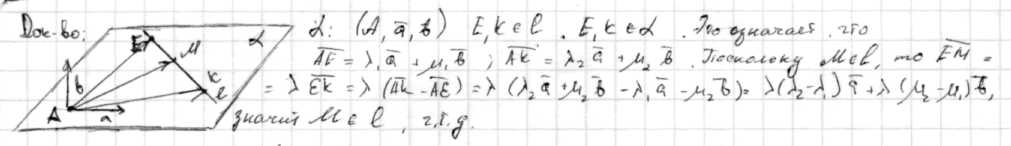 Док-во: α: (A, a̅, b̅) E, K ∈ l. E, K ∈ α. Это означает, что
E M α A̅E̅ = λ₁a̅ + μ₁b̅; A̅K̅ = λ₂a̅ + μ₂b̅. Поскольку M∈l, то E̅M̅ =
b K l = λ E̅K̅ = λ (A̅K̅ - A̅E̅) = λ (λ₂a̅ + μ₂b̅ - λ₁a̅ - μ₂b̅) = λ(λ₂-λ₁)a̅ + λ (μ₂-μ₁)b̅,
A a значит M ∈ l, ч.т.д.